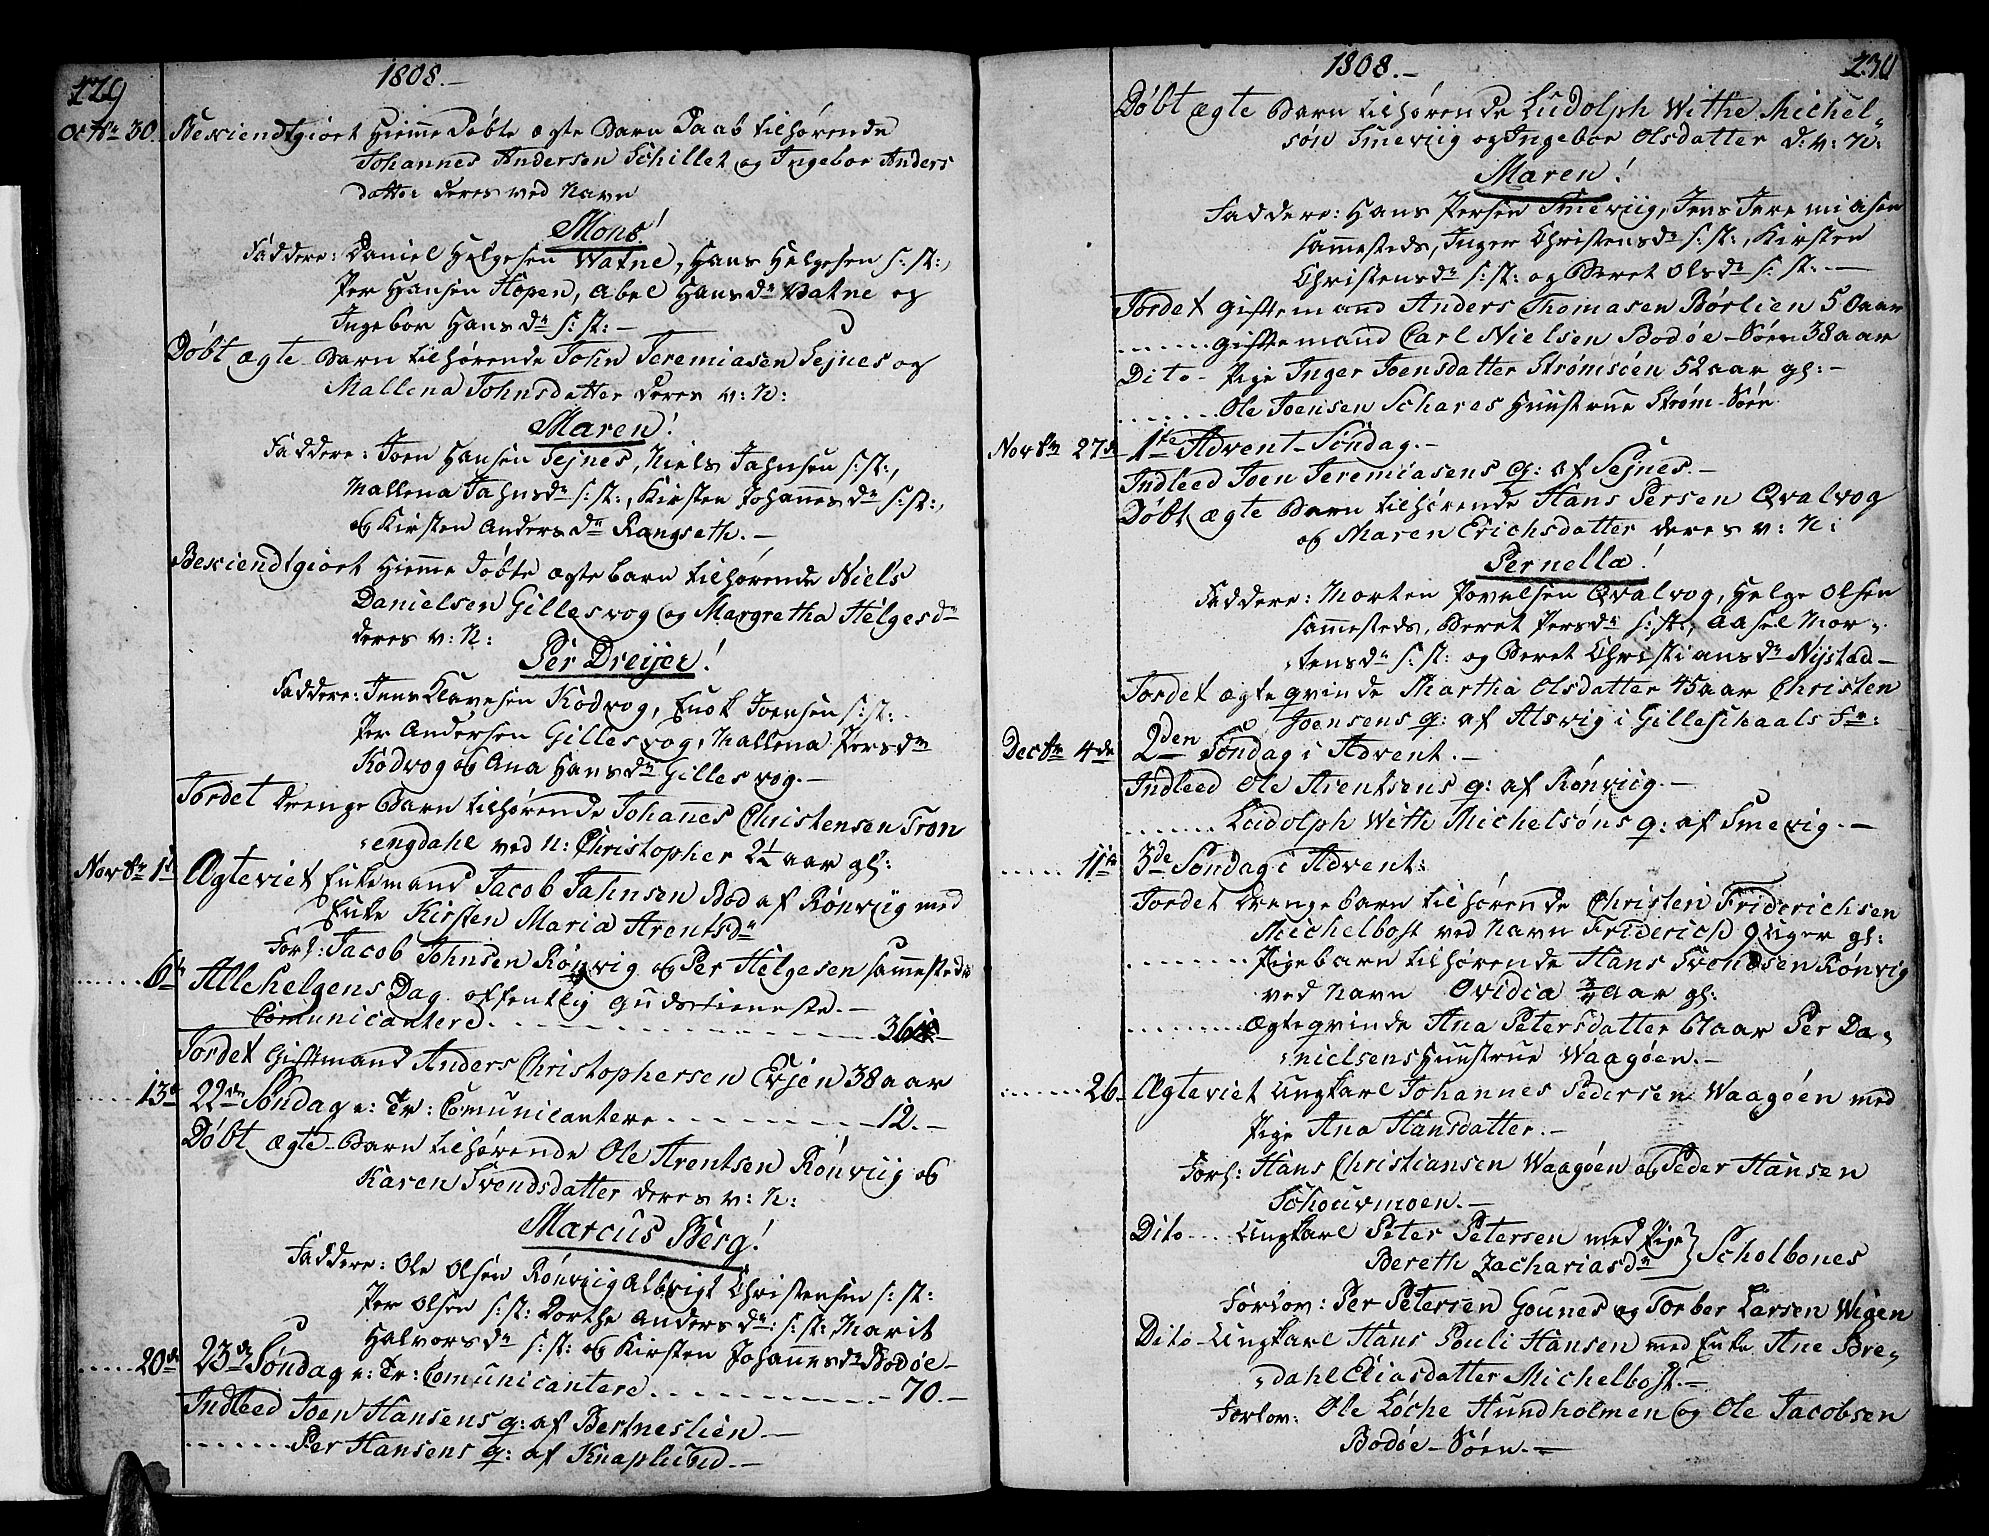 229
1808.-
Octbr 30. Bekiendtgiort Hiemme Døbte ægte Barn Daab tilhørende
Johannes Andersen Schillet og Ingebor Anders
datter deres ved Navn
Mons!
Faddere: Daniel Helgesen Watne, Hans Helgesen s: st:,
Per Hansen Hopen, Abel Hans dr Vatne og
Ingebor Hans dr s: st: -
Døbt ægte Barn tilhørende John Jeremiasen Sejnes og
Mallena Johnsdatter deres v: N:
Maren!
Faddere: Joen Hansen Sejnes, Niels Jahnsen s: st:,
Mallena Jahns dr s: st:, Kirsten Johannes dr s: st:,
og Kirsten Anders dr Rangseth. -
Bekiendtgiort Hiemme døbte ægte barn tilhørende Niels
Danielsen Gillesvog og Margretha Helgesdr
deres v: N:
Per Dreijer!
Faddere: Jens Klavesen Kodvog, Enok Joensen s: st:
Per Andersen Gillesvog, Mallena Pers dr
Kodvog og Ana Hans dr Gillesvog. -
Jordet Drenge Barn tilhørende Johañes Christensen Tron
engdahl ved n: Christopher 2¼ aar gl:
Novbr 1te Ægteviet Enkemand Jacob Jahnsen Bod af Rønviig med
Enke Kirsten Maria Arentsdr
Forl: Jacob Johnsen Rønvig og Per Helgesen sammesteds
6te Allehelgens Dag offentlig Gudstieneste. -
Comunicantere 36
Jordet Giftmand Anders Christophersen Evjen 38 aar
13de 22de Søndag e: Tr: Comunicantere 12. -
Døbt ægte Barn tilhørende Ole Arentsen Rønviig og
Karen Svendsdatter deres v: N:
Marcus Berg!
Faddere: Ole Olsen Rønviig Albrigt Christensen s: st:
Per Olsen s: st: Dorthe Anders dr: s: st: Marit
Halvors dr s: st: og Kirsten Johannes dr Bodøe -
20de 23de Søndag e: Tr: Comunicantere 70. -
Indleed Joen Hansens q: af Bestneslien -
Per Hansens q: af Knaplund. -
230
1808. -
Døbt ægte Barn tilhørende Ludolph Withe Michel-
søn Smeviig og Ingebor Olsdatter d: v: N:
Maren!
Faddere: Hans Persen Smeviig, Jens Jeremiasen
sammesteds, Inger Christens dr s: st:, Kirsten
Christens dr s: st: og Beret Ols dr s: st: -
Jordet Giftemand Anders Thomasen Børlien 50 aar
giftemand Carl Nielsen Bodøe-Søen 38 aar
Dito - Pige Inger Joensdatter Strømsøen 52 aar gl: -
Ole Joensen Schares Huustrue Strøm-Søen
Novbr 27de 1te Advent-Søndag. -
Indleed Joen Jeremiasens q: af Sejnes. -
Døbt ægte Barn tilhørende Hans Persen Qvalvog
og Maren Erichsdatter deres v: N:
Pernella!
Faddere: Morten Povelsen Qvalvog, Helge Olsen
sammesteds, Beret Pers dr s: st:, Aasel Mor-
tens dr s: st: og Beret Christians dr Nystad -
Jordet ægte qvinde Martha Olsdatter 45 aar Christen
Joensens q: af Alsvig i Gilleschaals Fr:
Decbr 4de 2den Søndag i Advent. -
Indleed Ole Arentsens q: af Rønviig. -
Ludolph With Michelsøns q: af Smevig. -
11te 3de Søndag i Advent:
Jordet Drenge barn tilhørende Christen Friderichsen
Michelbost ved Navn Friderich 9 Uger gl:
Pigebarn tilhørende Hans Svendsen Rønvig
ved Navn Ovidia ¾ aar gl:
Ægteqvinde Ana Petersdatter 61 aar Per Da-
nielsens Huustrue Waagøen. -
26. Ægteviet Ungkarl Johannes Pedersen Waagøen med
Pige Ana Hansdatter. -
Forl: Hans Christiansen Waagøen og Peder Hansen
Schouvmoen. -
Dito Ungkarl Peter Petersen med Pige
Bereth Zacharias dr } Scholbones
Forlov: Per Petersen Gounes og Torber Larsen Wigen
Dito - Ungkarl Hans Pouli Hansen med Enke Ane Bre-
dahl Eliasdatter Michelbost. -
Forlov: Ole Løche Hundholmen og Ole Jacobsen
Bodøe-Søen. -